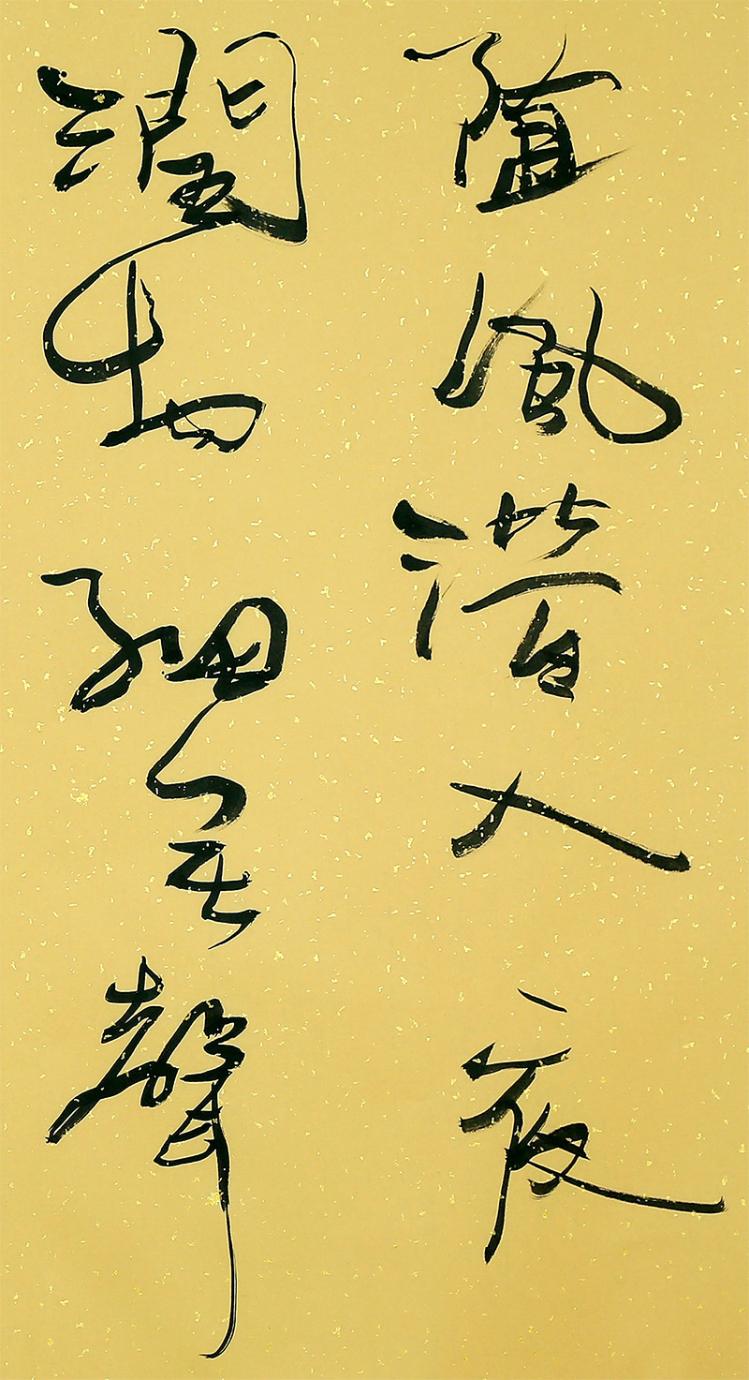 隨風潛入夜
潤物細無聲